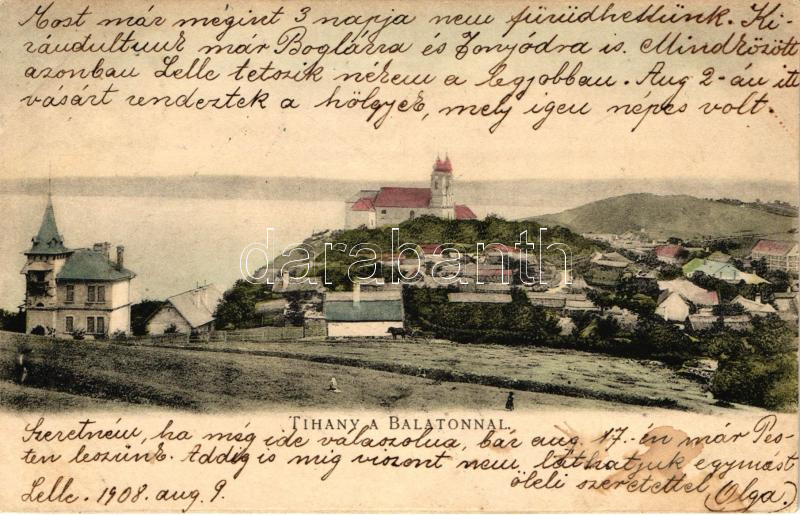 Most már mégint 3 napja nem fürüdhettünk. Ki-
rándultunk már Boglárra és Fonyódra is. Mindközött
azonban Lelle tetszik nékem a legjobban. Aug 2-án itt
vásárt rendeztek a hölgyek, mely igen népes volt.
darabanth
TIHANY A BALATONNAL.
Szeretném, ha még ide válaszolna, bár aug. 17.-én már Pes-
ten leszünk. Addig is míg viszont nem láthatjuk egymást
öleli szeretettel Olga.
Lelle. 1908. aug. 9.